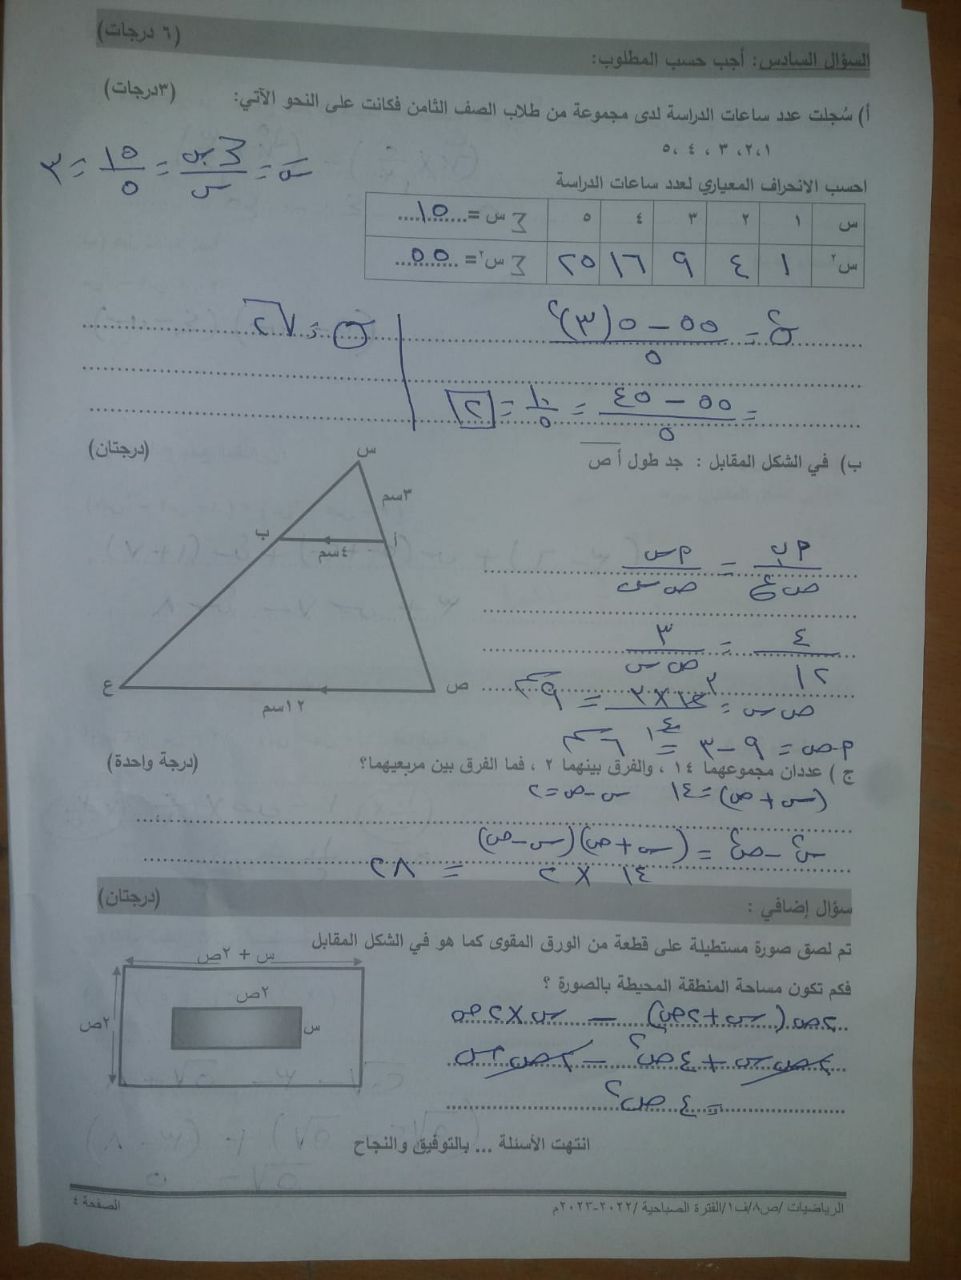 (٦ درجات)
السؤال السادس: أجب حسب المطلوب:
أ) سُجلت عدد ساعات الدراسة لدى مجموعة من طلاب الصف الثامن فكانت على النحو الآتي: (٣درجات)
١،٢، ٣ ، ٤ ،٥
س̄ = ∑س / س = ١٥ / ٥ = ٣
احسب الانحراف المعياري لعدد ساعات الدراسة
س ١ ٢ ٣ ٤ ٥ ∑ س = ١٥
س٢ ١ ٤ ٩ ١٦ ٢٥ ∑ س٢= ٥٥
σ٢ = ٥٥ - ٥(٣)٢ / ٥ σ = √٢
= ٥٥ - ٤٥ / ٥ = ١٠ / ٥ = ٢
ب) في الشكل المقابل : جد طول أ ص (درجتان)
س
٣سم
ب
أ
٤سم
ع
ص
١٢سم
أب / ص ع = أس / ص س
٤ / ١٢ = ٣ / ص س
ص س = ١٢×٣ / ٤ = ٩سم
أص = ٩ - ٣ = ٦سم
ج ) عددان مجموعهما ١٤ ، والفرق بينهما ٢ ، فما الفرق بين مربعيهما؟ (درجة واحدة)
(س + ص) = ١٤ س - ص = ٢
س٢ - ص٢ = (س + ص)(س - ص)
١٤ × ٢ = ٢٨
سؤال إضافي : (درجتان)
تم لصق صورة مستطيلة على قطعة من الورق المقوى كما هو في الشكل المقابل
فكم تكون مساحة المنطقة المحيطة بالصورة ؟
س + ٢ص
٢ص
س
٢ص
٢ص (س + ٢ص) - س × ٢ص
٢ص س + ٤ص٢ - ٢ص س
= ٤ص٢
انتهت الأسئلة ... بالتوفيق والنجاح
الرياضيات /ص٨/ف١/الفترة الصباحية /٢٠٢٢-٢٠٢٣م
الصفحة ٤